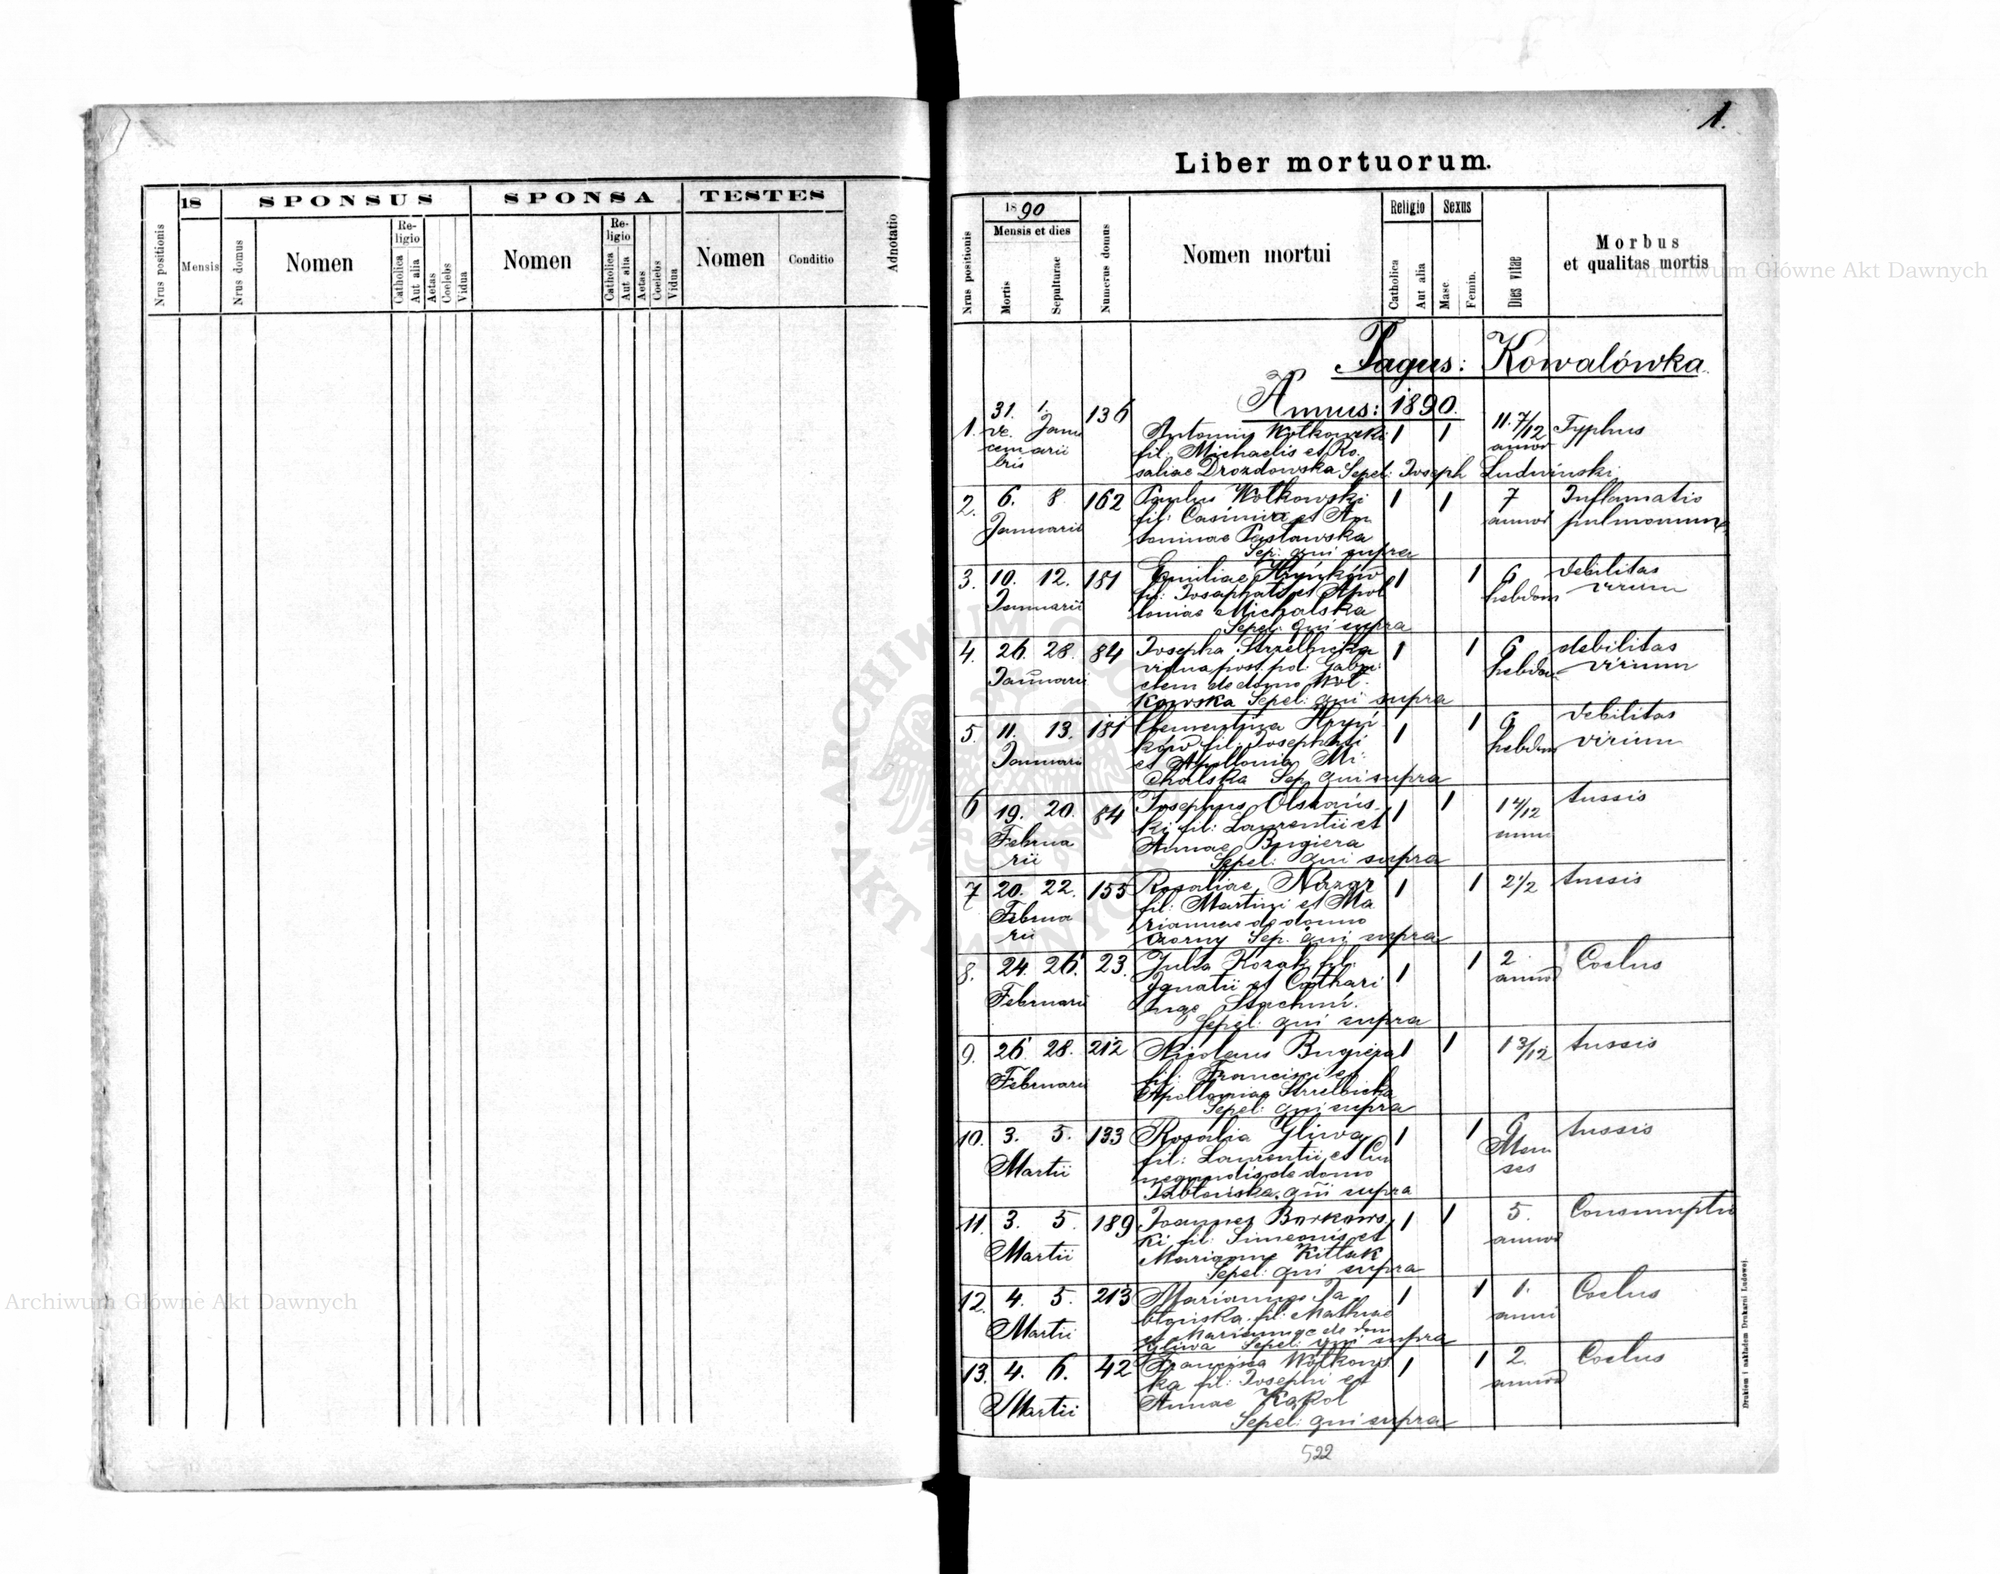 SPONSUS
SPONSA
TESTES
18
Nrus positionis
Mensis
Nrus domus
Nomen
Re-
ligio
Catholica
Aut alia
Aetas
Coelebs
Vidua
Nomen
Re-
ligio
Catholica
Aut alia
Aetas
Coelebs
Vidua
Nomen
Conditio
Adnotatio
1.
Liber mortuorum.
Nrus positionis
1890
Mensis et dies
Mortis
Sepulturae
Numerus domus
Nomen mortui
Religio
Catholica
Aut alia
Sexus
Masc.
Femin.
Dies vitae
Morbus
et qualitas mortis
Pagus: Kowalówka.
Annus: 1890.
1. 31. 1. 136 Antonius Wołkowski 1 1 11. 7/12 Typhus
De- Janu
cem arii
bris
annor
fil: Michaelis et Ro-
saliae Drozdowska Sepel: Joseph Ludwiński.
2. 6. 8. 162 Paulus Wołkowski 1 1 7 Inflamatio
Januarii fil: Casimira et An annor pulmonum
toninae Pasławska
Sep: qui supra
3. 10. 12. 181 Emiliae Hryńków 1 1 6 Debilitas
Januarii fil: Josaphati et Apol hebdom virium
loniae Michalska
Sepel: qui supra
4. 26. 28. 84 Josepha Strzelbicka 1 1 6 debilitas
Januarii vidua post hebdom virium
de domo Woł-
kowska Sepel: qui supra
5. 11. 13. 181 Clementina Hryń 1 1 6 Debilitas
Januarii ków fil: Josaphati hebdom virium
et Apollonia Mi-
chalska Sep. qui supra
6 19. 20. 84 Josephus Olszańs- 1 1 1 4/12 tussis
Februa ki fil: Laurentii et anni
rii Annae Bugiera
Sepel: qui supra
7 20. 22. 155 Rosaliae Nazar 1 1 2 1/2 tussis
Februa fil: Martini et Ma
rii riannae de domo
Czorny Sep. qui supra
8. 24. 26. 23. Julia Kozak fil: 1 1 2. Coelus
Februarii Ignatii et Cathari annor
nae Stachniń.
Sepel: qui supra
9. 26. 28. 212 Nicolaus Bugiera 1 1 1 3/12 tussis
Februarii fil: Francisci et
Apolloniae Strzelbicka
Sepel: qui supra
10. 3. 5. 133 Rosalia Gliwa 1 1 9 tussis
Martii fil: Laurentii et Cu Men
negundis de domo ses
Jabłońska. qui supra
11. 3. 5. 189 Joannes Borkows 1 1 5. Consumptio
Martii ki fil: Simeonis et annor
Marianne Kitlak
Sepel: qui supra
12. 4. 5. 213 Mariannae Ja 1 1 1. Coelus
Martii błońska. fil: Mathiae anni
et Mariannae de dom
Gliwa Sepel: qui supra
13. 4. 6. 42 Francisca Wołkows 1 1 2. Coelus
Martii ka fil: Josephi et annor
Annae Karol
Sepel: qui supra
522
Drukiem i nakładem Drukarni Ludowej.
Archiwum Główne Akt Dawnych
Archiwum Główne Akt Dawnych
ARCHIWUM GŁÓWNE AKT DAWNYCH